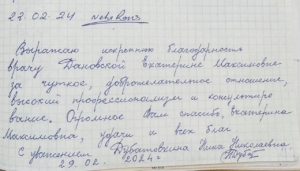 22.02.24
Выражаю искреннюю благодарность
врачу Дановской Екатерине Максимовне
за чуткое, доброжелательное отношение,
высокий профессионализм и консультиро
вание. Огромное Вам спасибо, Екатерина
Максимовна, удачи и всех благ
С уважением Нина Николаевна
29.02. 2024г